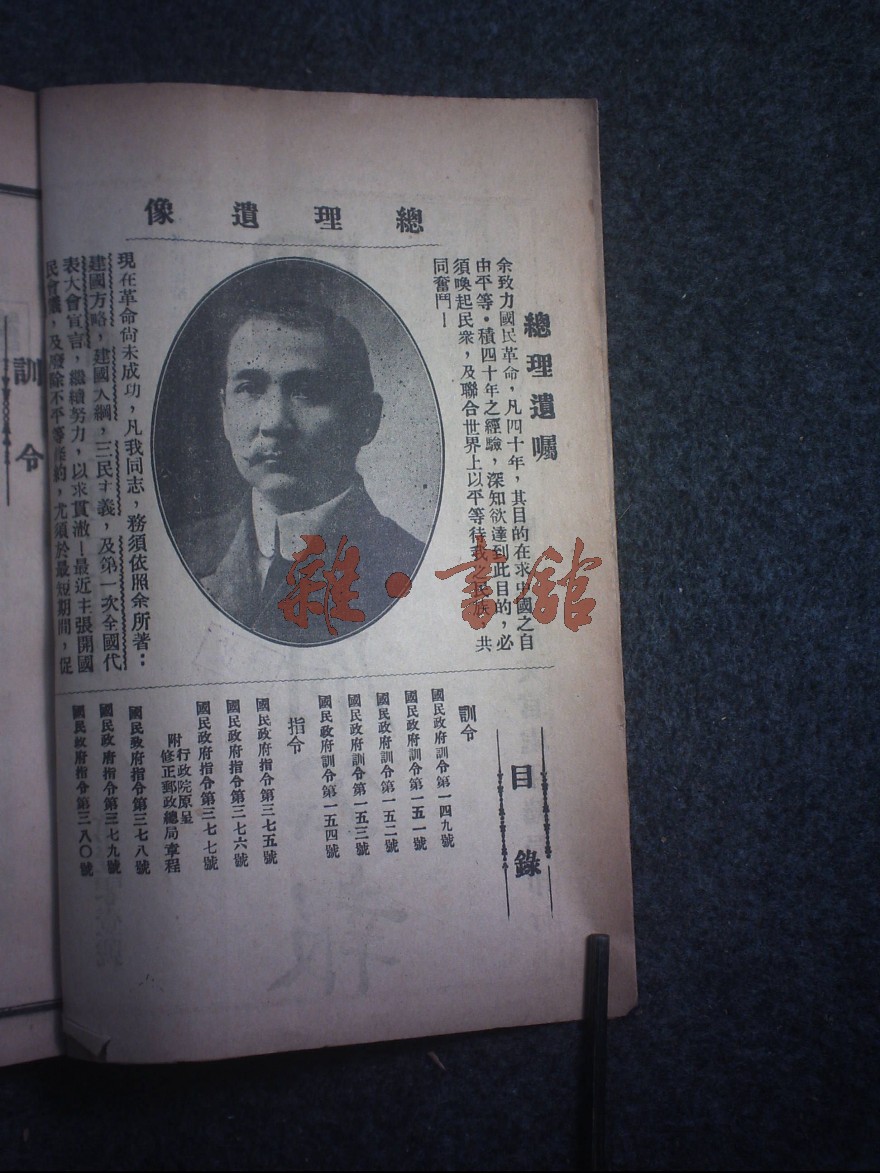 總理遺像
總理遺囑
余致力國民革命，凡四十年，其目的在求中國之自
由平等·積四十年之經驗，深知欲達到此目的，必
須喚起民衆，及聯合世界上以平等待我之民族，共
同奮鬥—
現在革命尚未成功，凡我同志，務須依照余所著：
建國方略，建國大綱，三民主義，及第一次全國代
表大會宣言，繼續努力，以求貫澈—最近主張開國
民會議，及廢除不平等條約，尤須於最短期間，促
目錄
訓令
國民政府訓令第一四九號
國民政府訓令第一五一號
國民政府訓令第一五二號
國民政府訓令第一五三號
國民政府訓令第一五四號
指令
國民政府指令第三七五號
國民政府指令第三七六號
國民政府指令第三七七號
附行政院原呈
修正郵政總局章程
國民政府指令第三七八號
國民政府指令第三七九號
國民政府指令第三八〇號
訓令
雜·書館